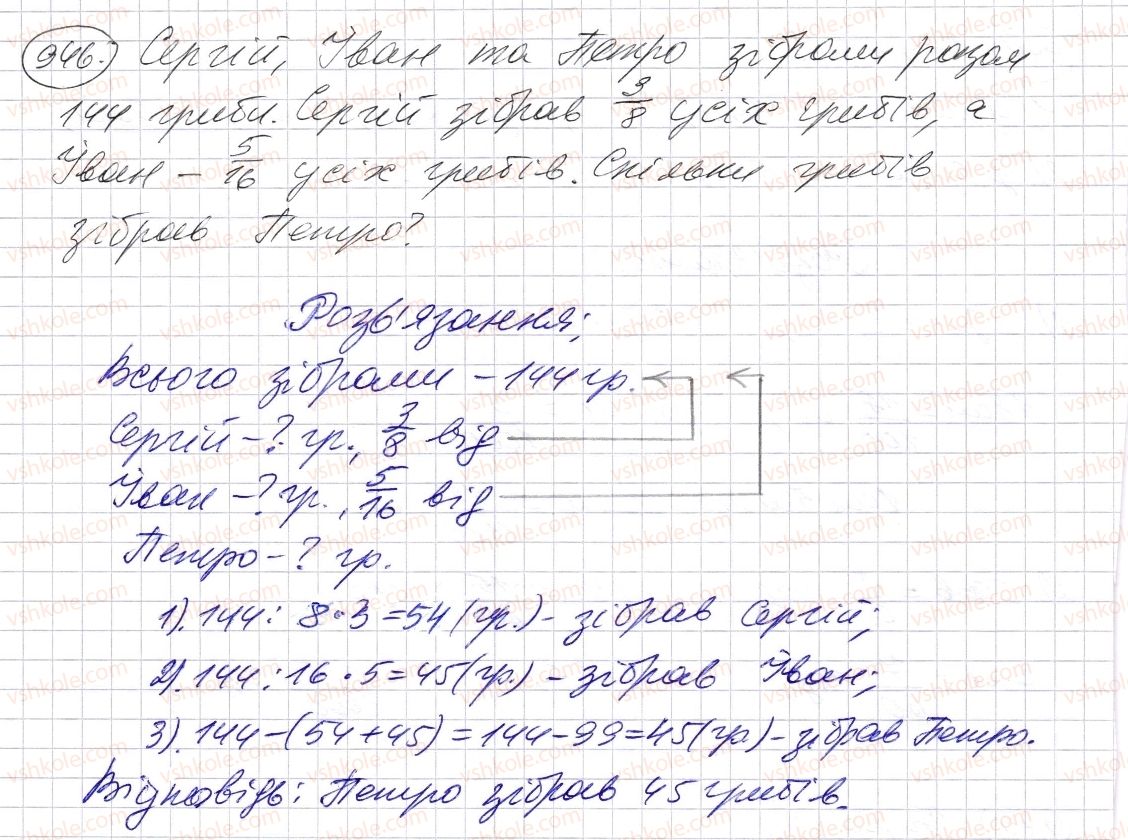 946. Сергій, Іван та Петро зібрали разом
144 гриби. Сергій зібрав 3/8 усіх грибів, а
Іван – 5/16 усіх грибів. Скільки грибів
зібрав Петро?
Розв'язання;
Всього зібрали – 144 гр.
Сергій – ? гр., 3/8 від
Іван – ? гр., 5/16 від
Петро – ? гр.
1). 144 : 8 · 3 = 54 (гр.) – зібрав Сергій;
2). 144 : 16 · 5 = 45 (гр.) – зібрав Іван;
3). 144 – (54 + 45) = 144 – 99 = 45 (гр.) – зібрав Петро.
Відповідь: Петро зібрав 45 грибів.